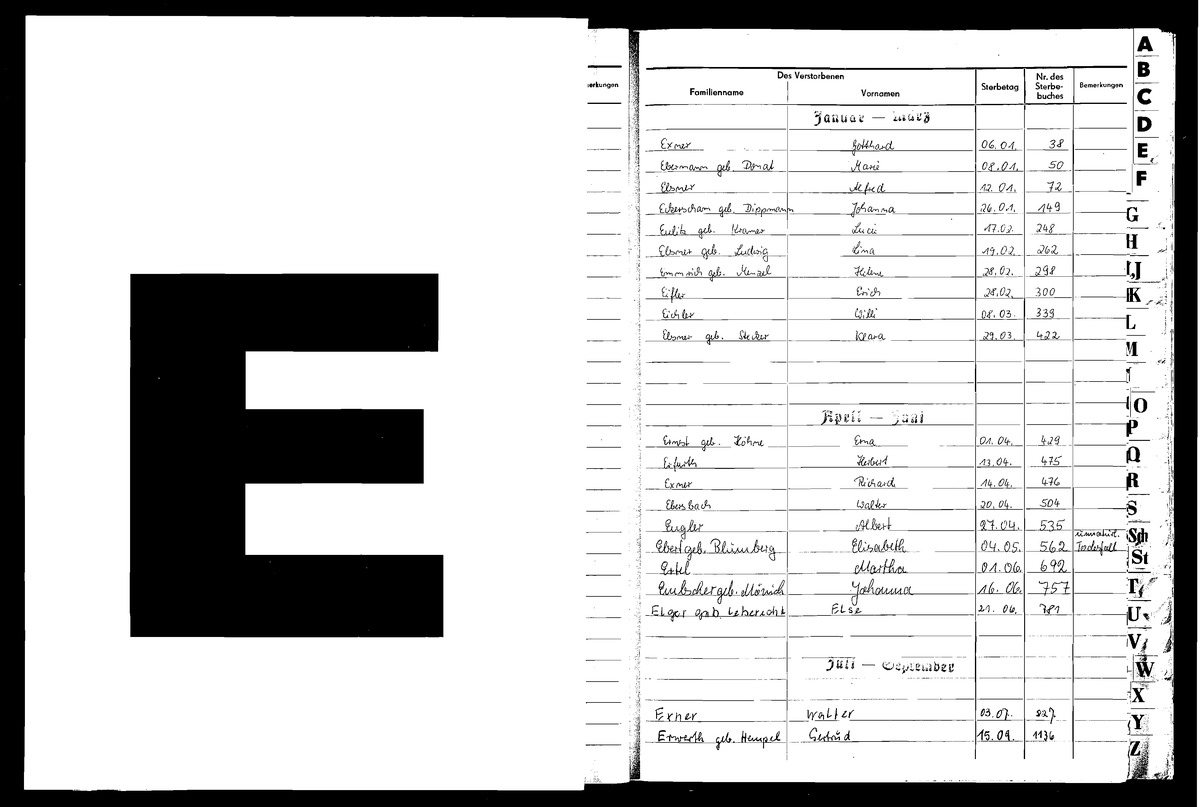 E
A
B
C
D
E
F
G
H
I,J
K
L
M
O
P
Q
R
S
Sch
St
T
U
V
W
X
Y
Z
erkungen
Des Verstorbenen
Familienname Vornamen Sterbetag Nr. des Sterbe- buches Bemerkungen
Januar — März
Exner Gotthard 06.01. 38
Ebermann geb. Donat Marie 08.01. 50
Elsner Alfred 12.01. 72
Eckerscham geb. Dippmann Johanna 26.01. 149
Eulitz geb. Kramer Lucie 17.02. 248
Elsner geb. Ludwig Lina 19.02. 262
Emmrich geb. Menzel Helene 28.02. 298
Eifler Erich 28.02. 300
Eichler Willi 08.03. 339
Elsner geb. Stecker Klara 29.03. 422
April — Juni
Ernst geb. Höhme Erna 01.04. 429
Erfurth Herbert 13.04. 475
Exner Richard 14.04. 476
Ebersbach Walter 20.04. 504
Engler Albert 27.04. 535
Ebert geb. Blümberg Elisabeth 04.05. 562 Todesfall
Ertel Martha 01.06. 692
geb. Mönich Johanna 16.06. 757
Elger geb. Leberecht Else 21.06. 781
Juli — September
Exner Walter 03.07. 827
Erwerth geb. Hempel Gertrud 15.09. 1136